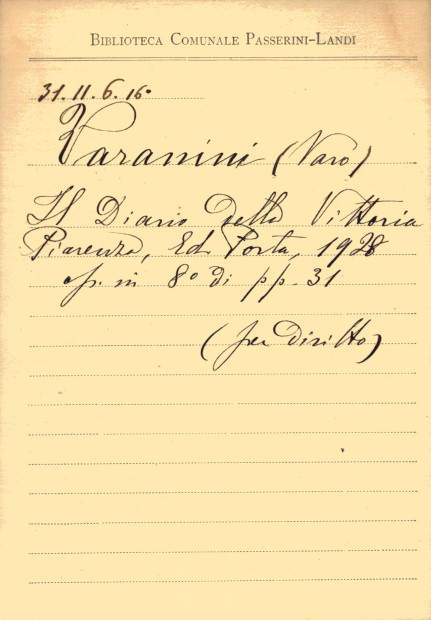 BIBLIOTECA COMUNALE PASSERINI-LANDI
31.11.6.16°
Varanini (Varo)
Il Diario della Vittoria
Piacenza, Ed. Porta, 1928
op. in 8° di pp. 31
(per diritto)